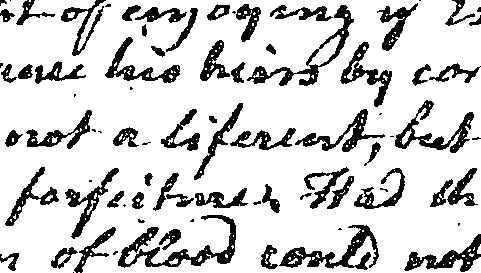 of enjoying it
his heirs by
not a liferent, but
forfeiture. Had th
of blood could not